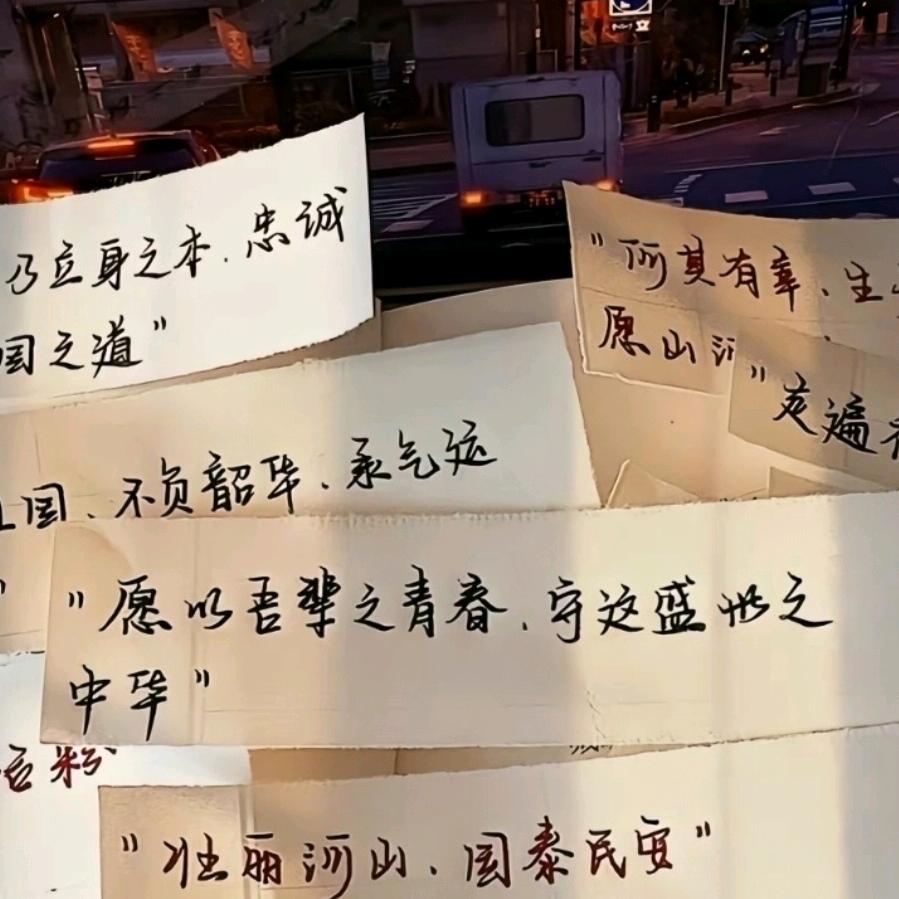 乃立身之本.忠诚
国之道"
"何其有幸、生
愿山河
"走遍
国、不负韶华、承气运
"愿以吾辈之青春、守这盛世之
中华"
"壮丽河山、国泰民安"